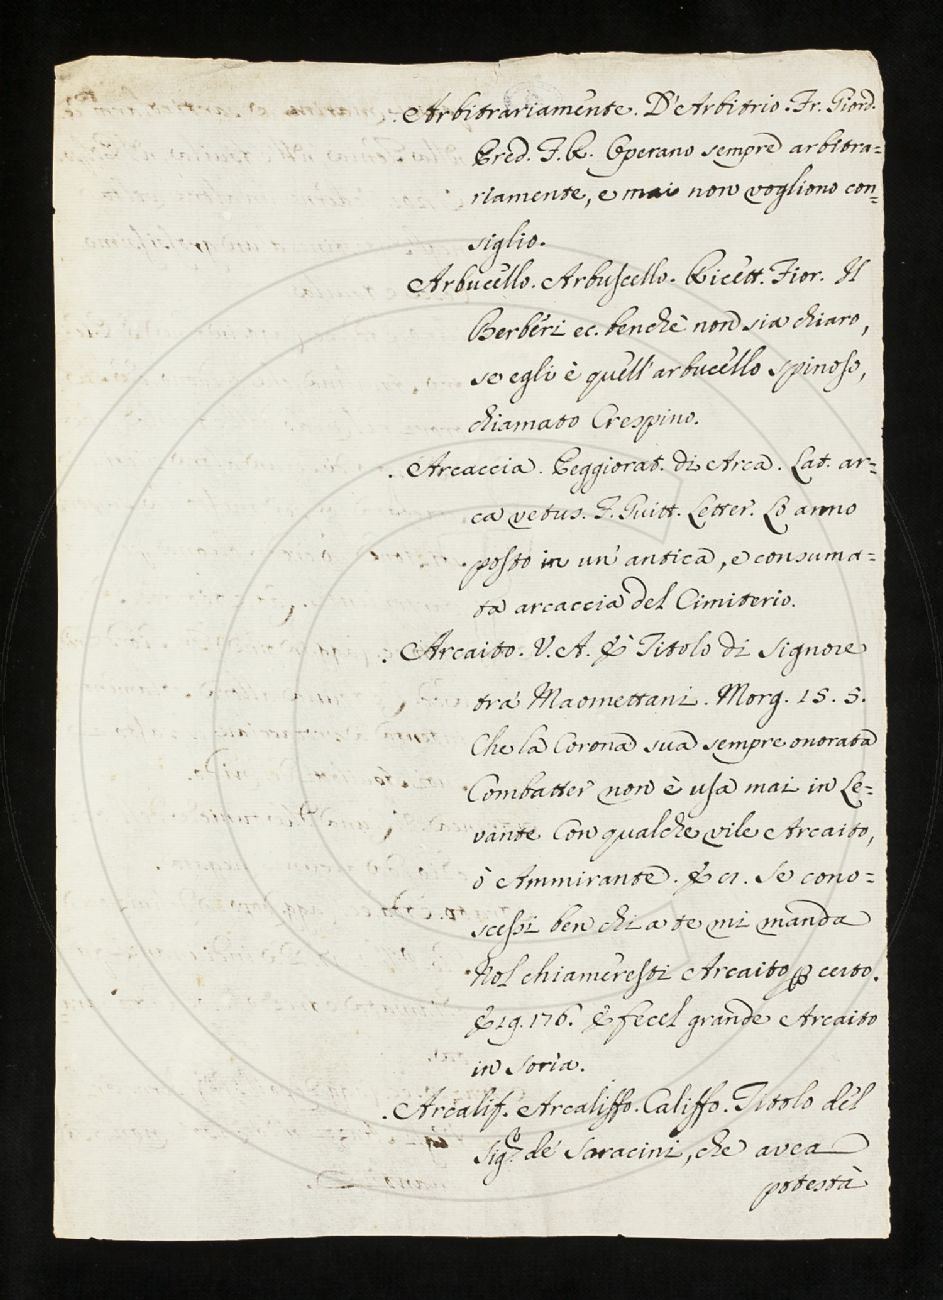 . Arbitrariamente. D'Arbitrio. Fr. Giord.
Pred. F. R. Operano sempre arbitra=
riamente, e mai non vogliono con=
siglio.
Arbucello. Arbuscello. Ricett. Fior. Il
Berberi ec. benchè non sia chiaro,
se egli è quell'arbucello spinoso,
chiamato Crespino.
. Arcaccia. Peggiorat. di Arca. Lat. ar=
ca vetus. F. Guitt. Letter. Lo anno
posto in un'antica, e consuma=
ta arcaccia del Cimiterio.
. Arcaito. V. A. È Titolo di Signore
tra' Maomettani. Morg. 15. 5.
Che la Corona sua sempre onorata
Combatter non è usa mai in Le=
vante Con qualche vile Arcaito,
ò Ammirante. E 21. Se cono=
scessi ben chi a te mi manda
Nol chiameresti Arcaito p certo.
E 19. 176. E fecel grande Arcaito
in Soria.
. Arcalif. Arcaliffo. Califfo. Titolo del
Sig.o de' Saracini, che avea
potestà